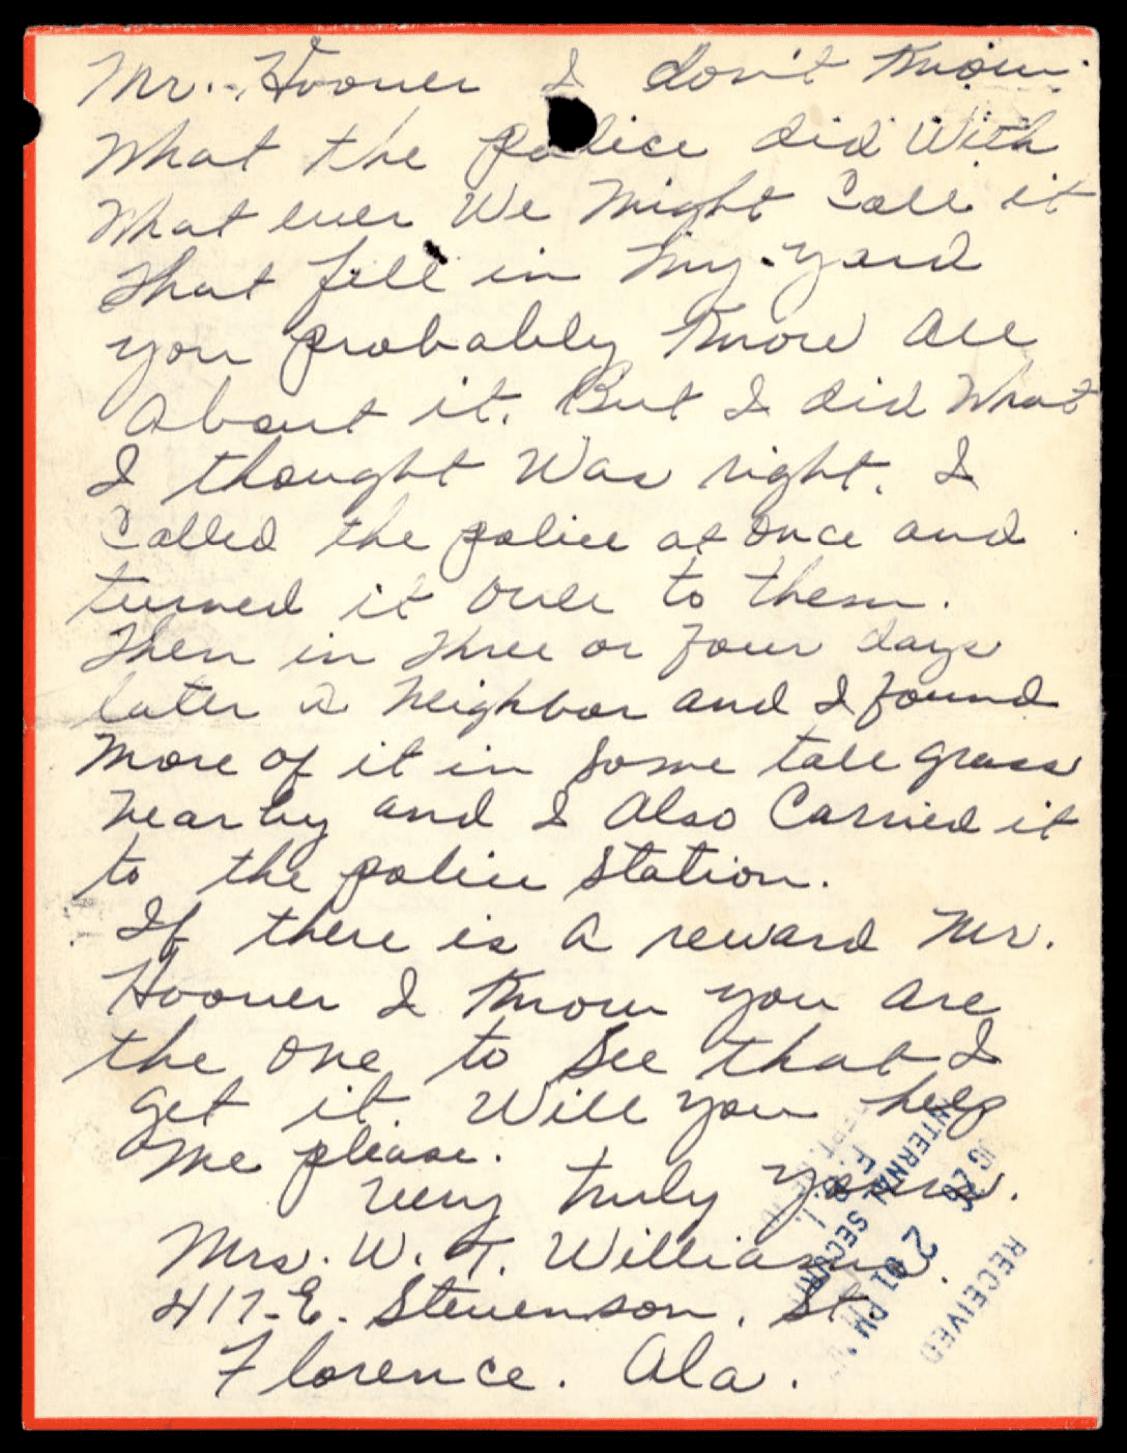 Mr. Hoover I don't know
What the police did With
What ever We Might Call it
that fell in My-yard
you probably know all
About it. But I did What
I thought Was right. I
Called the police at once and
turned it over to them.
Then in three or four days
later a Neighbor and I found
More of it in some tall grass
near by and I Also Carried it
to the police Station.
If there is A reward Mr.
Hoover I know you are
the one to see that I
get it. Will you help
me please.
Very truly yours.
Mrs. W. T. Williams.
417-E. Stevenson. St
Florence. Ala.
RECEIVED
26 2 01 PM
INTERNAL SECURITY
F. B. I.